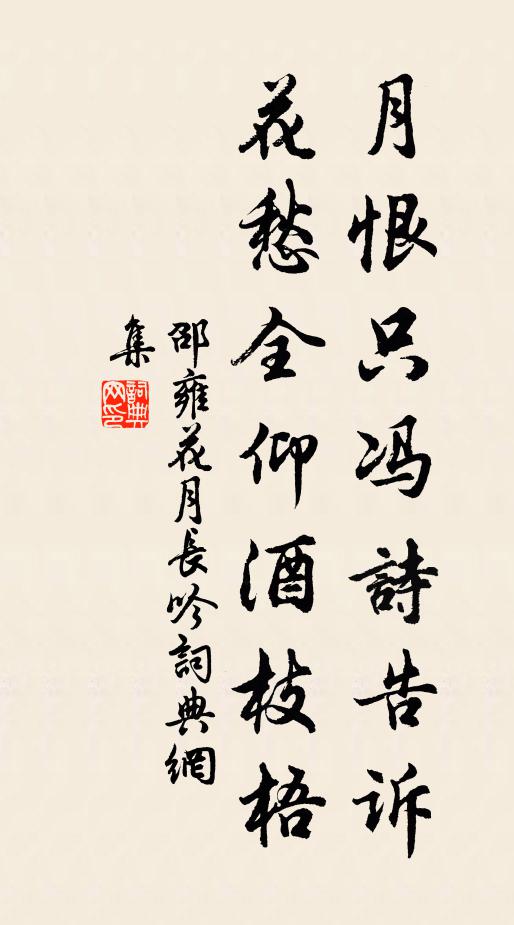 月恨只冯詩告訴
花愁全仰酒枝梧
邵雍花月長吟詞典網
集
詞典
网印